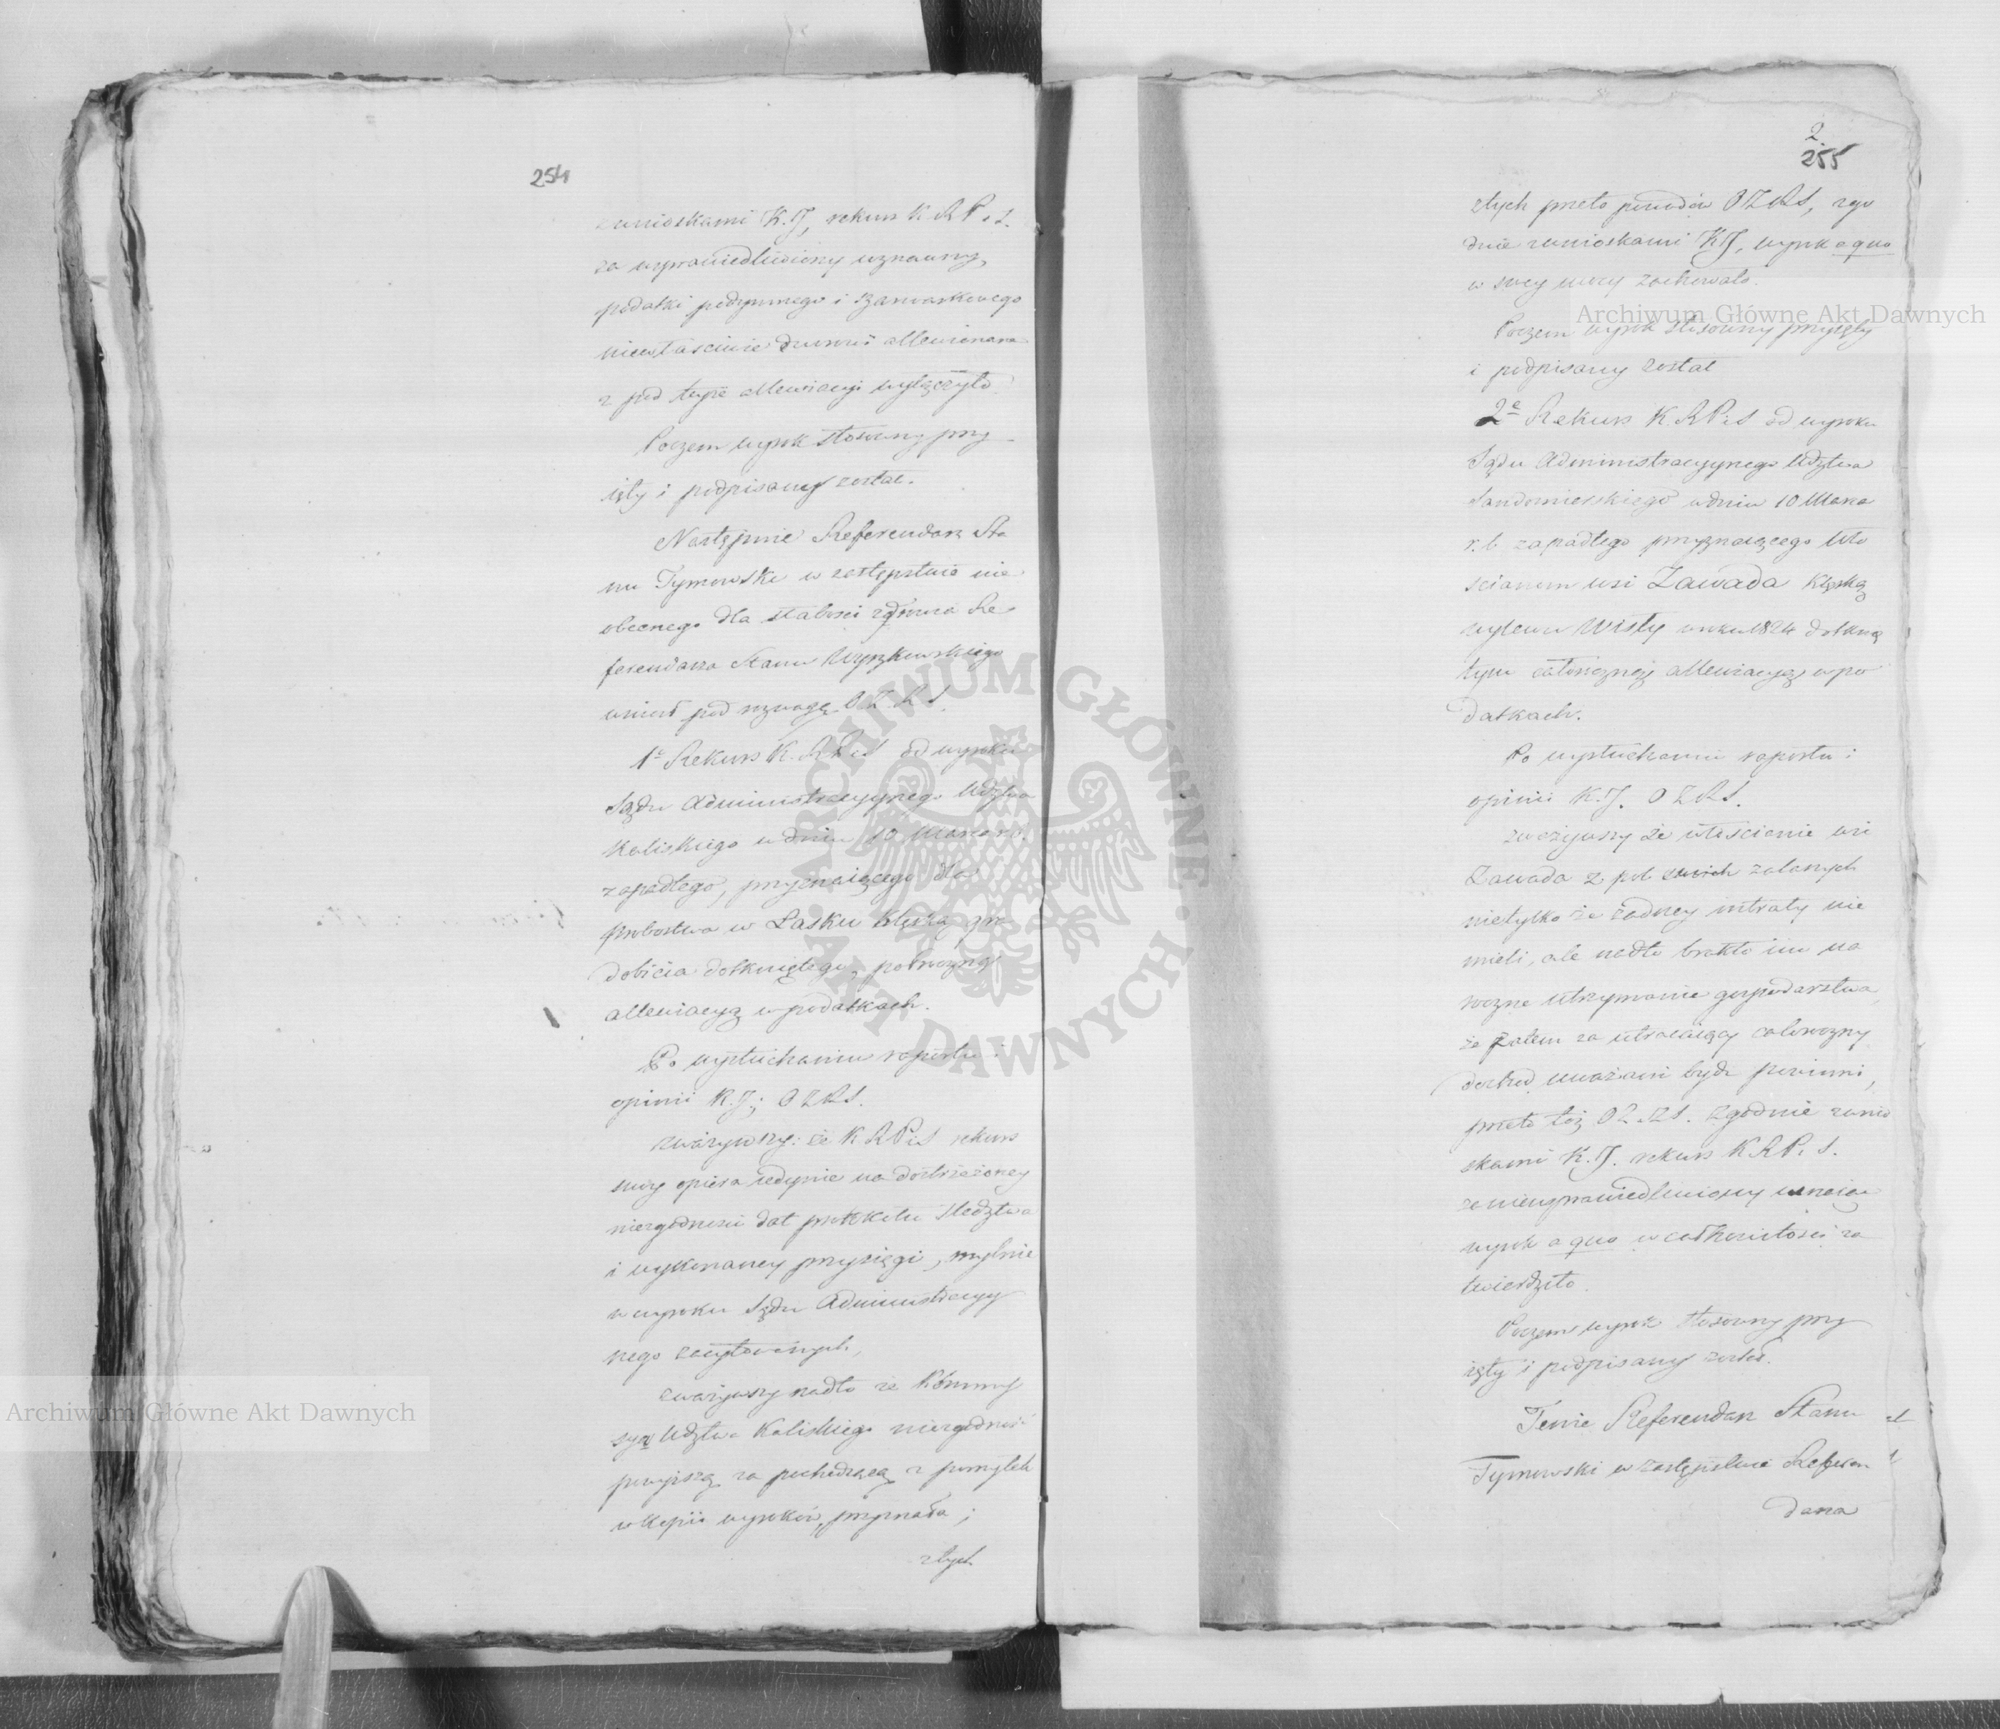 254
wnioskami K. J, rekurs K. R P i S.
za usprawiedliwiony uznawszy,
podatki podymnego i szarwarkowego
niewłaściwie decyzją allewionane
z pod teyże allewiacyi wyłączyło.
Poczem wyrok stosowny przy
ięty i podpisany został.
Następnie Referendarz Sta
nu Tymowski w zastępstwie nie
obecnego dla słabości zdrowia Re
ferendarza Stanu Wyszkowskiego
wniosł pod rozwagę O Z. R S.
1e Rekurs K. R P i S od wyroku
Sądu Administracyinego Wdztwa
Kaliskiego w dniu 10 Marca r. b.
zapadłego, przyznaiącego dla
probostwa w Łasku klęską gra
dobicia dotkniętego, półroczną
allewiacyą w podatkach.
Po wysłuchaniu raportu i
opinii K. J; O Z R S.
zważywszy: że K R P i S rekurs
swoy opiera iedynie na dostrzeżoney
niezgodności dat protokułu śledztwa
i wykonaney przysięgi, mylnie
w wyroku Sądu Administracyy
nego zacytowanych,
zważywszy nadto że Kommis
sya Wdztwa Kaliskiego niezgodność
powyższą za pochodzącą z pomyłek
w kopii wyroków, przyznała;
z tych
2
255
z tych przeto powodów O Z R S, zgo
dnie z wnioskami K J, wyrok a quo
w swey mocy zachowało.
Poczem wyrok stosowny przyięty
i podpisany został
2e Rekurs K. R P i S od wyroku
Sądu Administracyynego Wdztwa
Sandomierskiego w dniu 10 Marca
r. b. zapadłego przyznaiącego Wło
ścianom wsi Zawada klęską
wylewu Wisły w roku 1824 dotknię
tym całoroczną allewiacyą w po
datkach.
Po wysłuchaniu raportu i
opinii K. J. O Z R S.
zważywszy że włościanie wsi
Zawada z pól swoich zalanych
nietylko że żadney intraty nie
mieli, ale nadto brakło im na
roczne utrzymanie gospodarstwa,
że zatem za utracaiący całoroczny
dochód uważani bydź powinni,
przeto też O Z R S. zgodnie z wnio
skami K. J. rekurs K R P i S.
za nieusprawiedliwiony uznaiąc
wyrok a quo w całkowitości za
twierdziło.
Poczem wyrok stosowny przy
ięty i podpisany został.
Tenże Referendarz Stanu
Tymowski w zastępstwie Referen
darza
Archiwum Główne Akt Dawnych
Archiwum Główne Akt Dawnych
ARCHIWUM GŁÓWNE AKT DAWNYCH